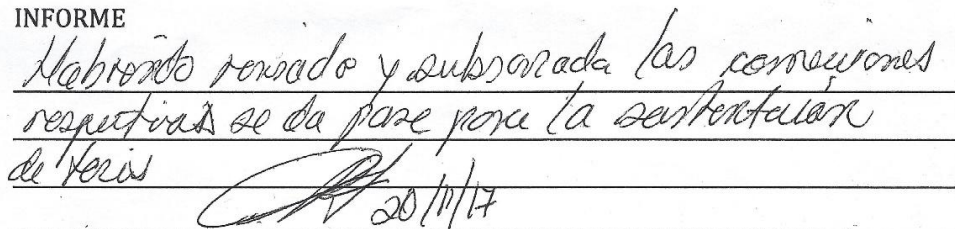 INFORME
Habiendo revisado y subsanada las correcciones
respectivas se da pase para la sustentación
de tesis
20/11/17